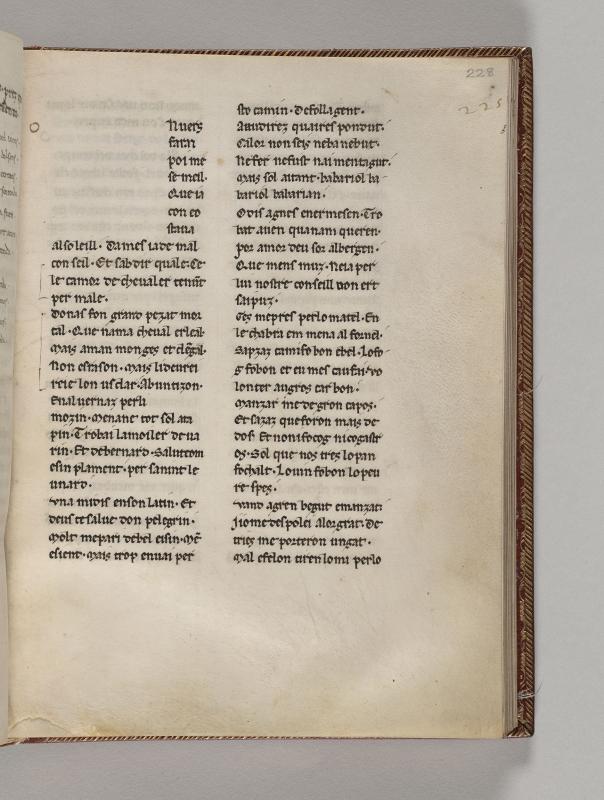 228
225
Nvers
faran
poi me
se meil.
Que ia
con eo
stava
al soleill. Dames ia de mal
conseil. Et sab dir quale. Ce
le camor de chevaler tenut
per male.
Donas fon grand pezat mor
tal. Que nama cheval er leal.
Mais aman monges et clegal.
Non es rason. Mais li deurei
reie lon usclar. Ab un tizon.
En al vernaz perli
mozin. Menane tot sol a ta
pin. Trobai la moiler de va
rin. Et de bernard. Saluteom
esin plament. per sannt le
unard.
Vna midis enson latin. Et
deus te salue don pelegrin.
Molt mepari debel eisin. Me
esient. Mais trop enuai per
sto camin. De folla gent.
Auudirez quaires pondut.
Cilor non seis ne ba ne but.
Ne fer ne fust nai mentagut.
Mais sol aitant. babariol ba
bariol babarian.
Odis agnes enermesen. Tro
bat auen quanam queren.
por amor deu sor albergen.
Que mens muz. Neia per
lui nostre conseill non ert
saipuz.
Ces mepres perlo matel. En
le chabra em mena al fornel.
Sapzaz camifo bon ebel. Lofo
g fo bon et eu mes caufai vo
lonter augros carbon.
Manzar me degron capos.
Et sazaz que foron mais de
dos. Et noni fo cog ni cogastr
os. Sol que nos tres lo pan
fo chalt. Lo uin fo bon lo peu
re spes.
vand agren begut emanzat.
Jiome despolei alor grat. De
tries me porteron un gat.
Mal efelon tiren lo mi perlo